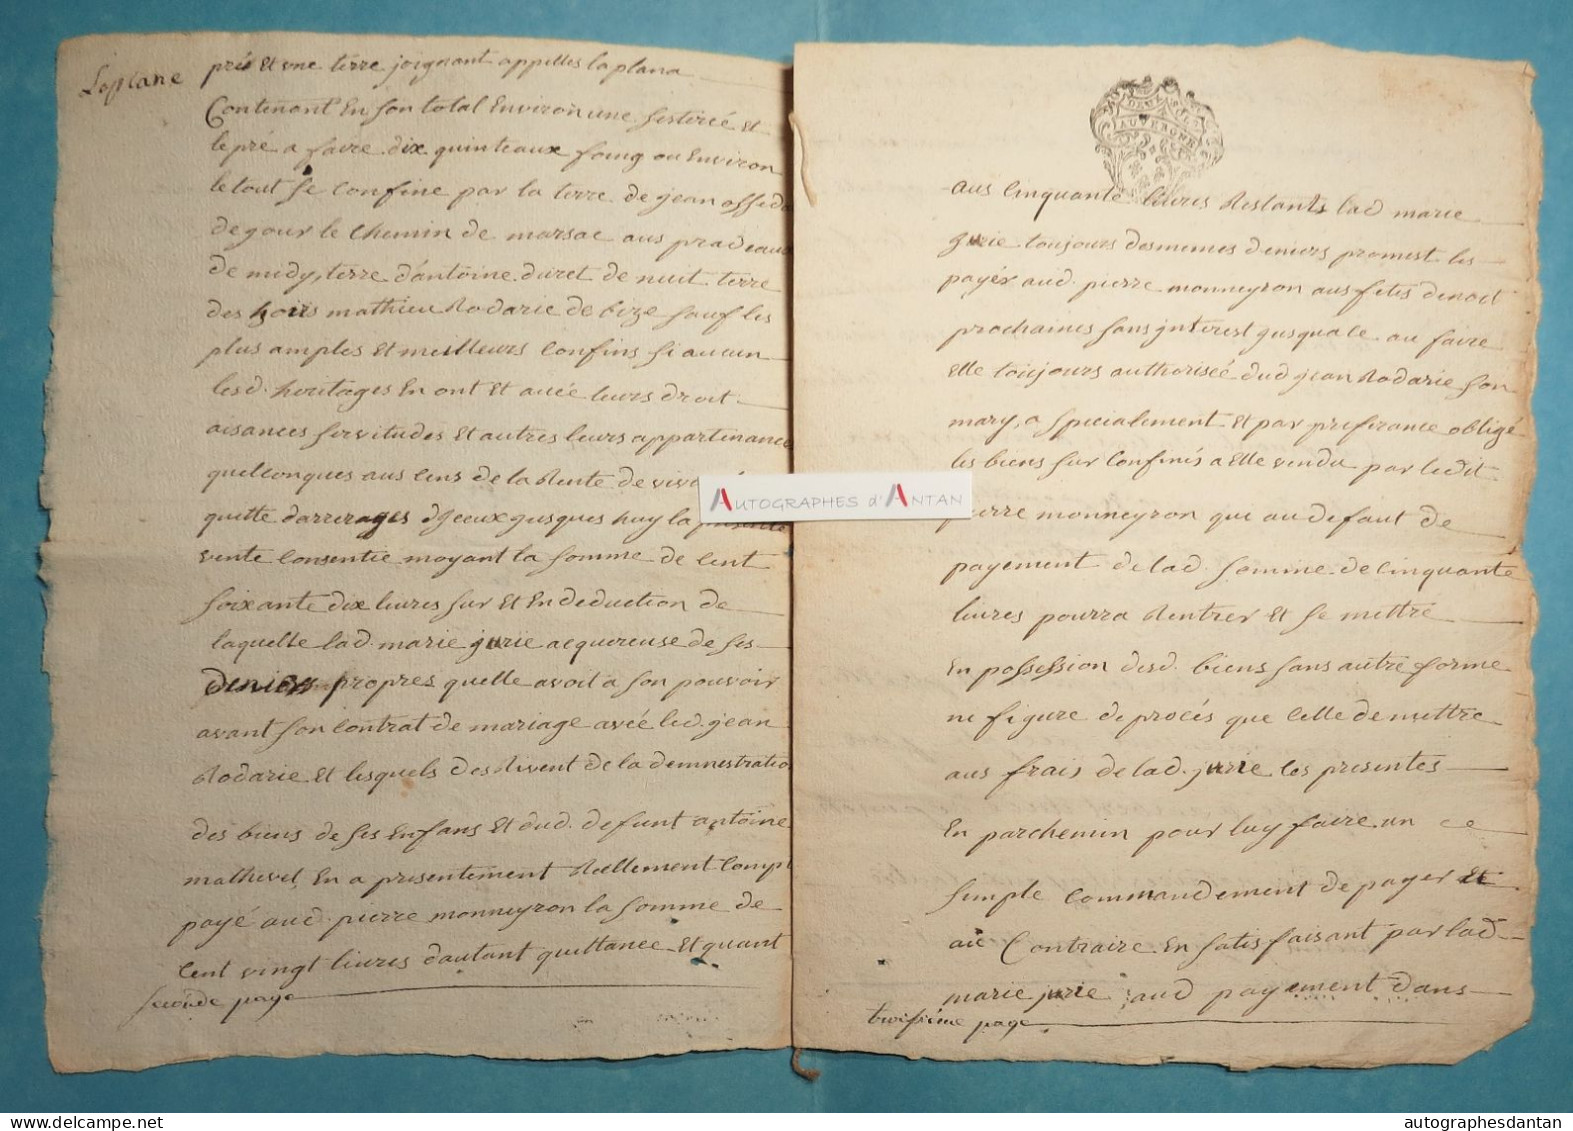 Laplane
pré et une terre joignant appelles la plana
Contenant En son total Environ une sesterée et
le pré a faire dix quinteaux foing ou Environ
le tout se confine par la terre de jean
de jour le chemin de marsac aus pradeaux
de midy, terre d'antoine duret de nuit terre
des hoirs mathieu Rodarie de bize sauf les
plus amples et meilleurs confins si aucun
lesd. heritages En ont et avec leurs droit
aisances servitudes et autres leurs appartinances
quelconques aus cens de la Rente de
quitte d'arrerages d'jceux jusques huy la presente
vente Consentie moyant la somme de cent
soixante dix livres sur et En deduction de
laquelle lad. marie jurie acquereuse de ses
deniers propres quelle avoit a son pouvoir
avant son contrat de mariage avec led. jean
Rodarie et lesquels desRivent de la demnestration
des biens de ses Enfans et dud. defunt antoine
mathevet, En a presentement Reellement compt
payé aud. pierre monneyron la somme de
cent vingt livres d'autant quittance et quant
seconde page
DEUX
AUVERGNE
aus cinquante livres Restants lad marie
jurie toujours desmemes deniers promest les
payér aud. pierre monneyron aus fetes denoel
prochaines sans jnterest jusqua ce au faire
Elle toujours authorisée dud jean Rodarie son
mary, a specialement et par preferance obligé
les biens sur confinés a Elle vendu par ledit
pierre monneyron que au defaut de
payement de lad. somme de cinquante
livres pourra Rentrer et se mettre
En possession desd. biens sans autre forme
ne figure de procés que celle de mettre
aus frais de lad. jurie les presentes
En parchemin pour luy faire un
simple commandement de payer et
au Contraire En satisfaisant par lad
marie jurie aud payement dans
troisième page
AUTOGRAPHES d'ANTAN
autographesdantan
delcampe.net
autographesdantan